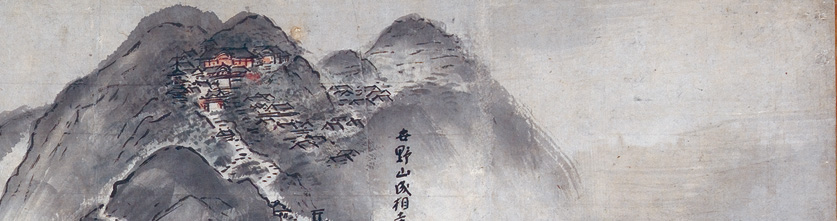 世野山成相寺